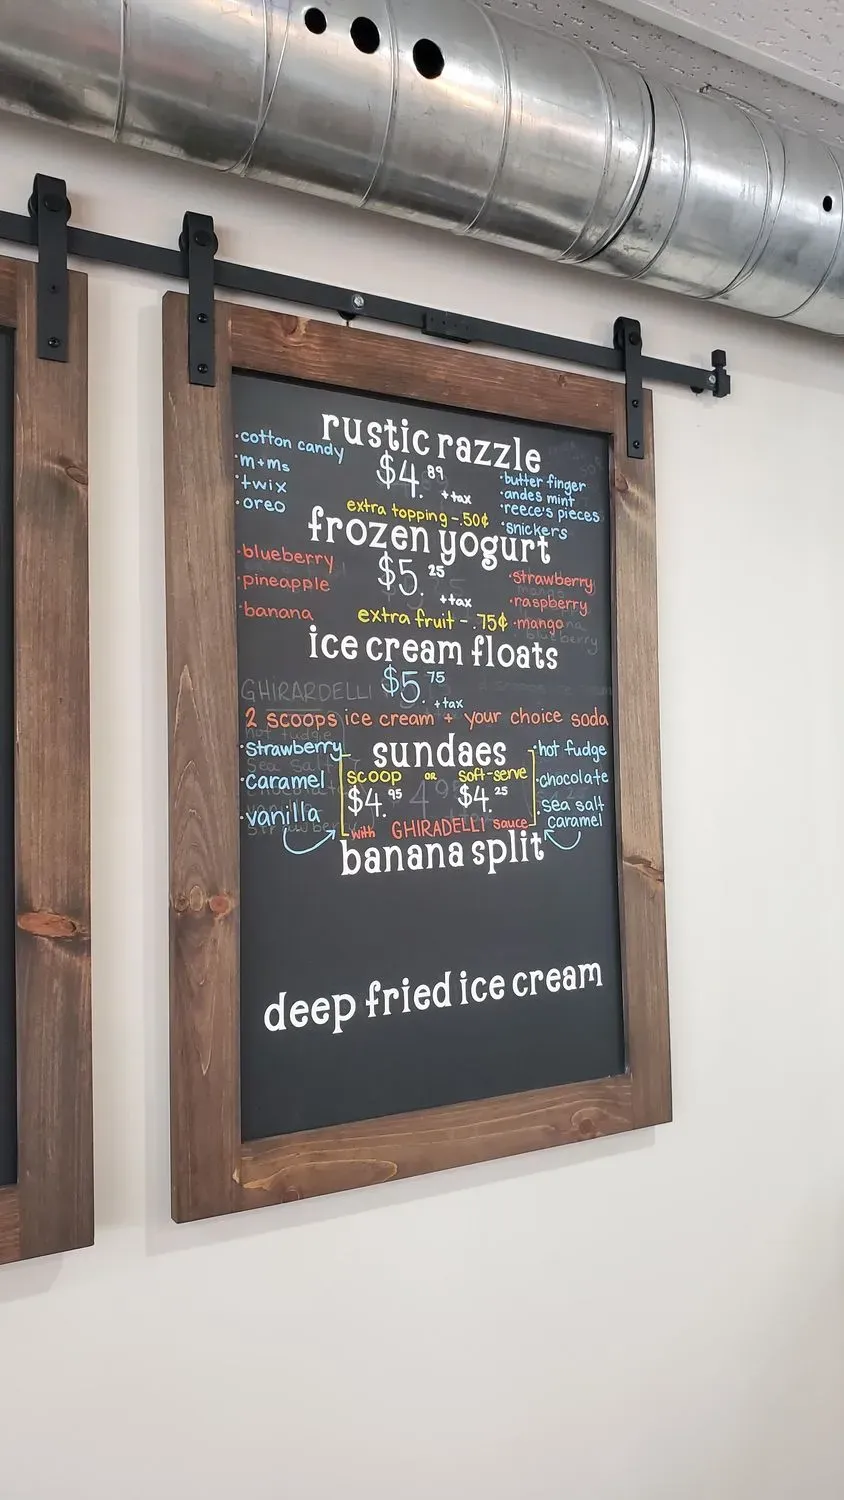 rustic razzle
·cotton candy
·m+ms
·twix
·oreo
$4.89
+tax
·butter finger
·andes mint
·reece's pieces
·snickers
extra topping - .50¢
frozen yogurt
·blueberry
·pineapple
·banana
$5.25
+tax
·strawberry
·raspberry
·mango
extra fruit - .75¢
ice cream floats
$5.75
+tax
GHIRARDELLI
2 scoops ice cream + your choice soda
sundaes
·strawberry
·caramel
·vanilla
scoop or soft-serve
$4.95 $4.25
with GHIRADELLI sauce
·hot fudge
·chocolate
·sea salt
caramel
banana split
deep fried ice cream